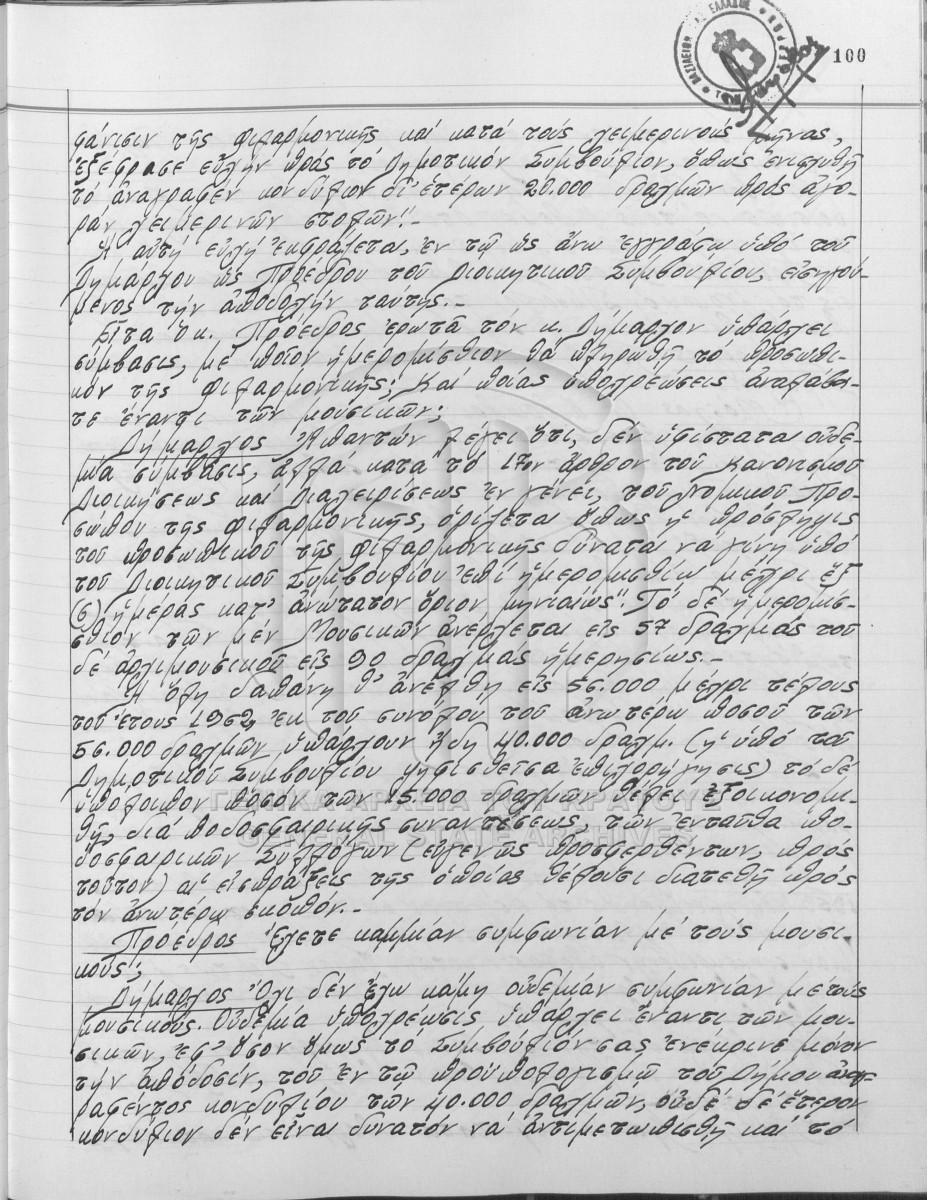 100
φάνισιν τῆς φιλαρμονικῆς καί κατά τούς χειμερινούς μῆνας,
ἐξέφρασε εὐχήν πρός τό Δημοτικόν Συμβούλιον, ὅπως ἐνισχυθῇ
τό ἀναγραφέν κονδύλιον δι' ἑτέρων 20.000 δραχμῶν πρός ἀγο-
ράν χειμερινῶν στολῶν".-
Ἡ αὐτή εὐχή ἐκφράζεται, ἐν τῷ ὡς ἄνω ἐγγράφῳ ὑπό τοῦ
Δημάρχου ὡς Προέδρου τοῦ Διοικητικοῦ Συμβουλίου, εἰσηγού-
μενος τήν ἀποδοχήν ταύτης.-
Εἶτα ὁ κ. Πρόεδρος ἐρωτᾶ τόν κ. Δήμαρχον ὑπάρχει
σύμβασις, μέ ποῖον ἡμερομίσθιον θά πληρωθῇ τό προσωπι-
κόν τῆς φιλαρμονικῆς; Καί ποίας ὑποχρεώσεις ἀναλάβα-
τε ἔναντι τῶν μουσικῶν;
Δήμαρχος Ἀπαντῶν λέγει ὅτι, δέν ὑφίσταται οὐδε-
μία σύμβασις, ἀλλά κατά τό 17ον ἄρθρον τοῦ Κανονισμοῦ
Διοικήσεως καί Διαχειρίσεως ἐν γένει, τοῦ Νομικοῦ Προ-
σώπου τῆς φιλαρμονικῆς, ὁρίζεται ὅπως ἡ πρόσληψις
τοῦ προσωπικοῦ τῆς φιλαρμονικῆς δύναται νά γίνῃ ὑπό
τοῦ Διοικητικοῦ Συμβουλίου ἐπί ἡμερομισθίῳ μέχρι ἕξ
(6) ἡμέρας κατ' ἀνώτατον ὅριον μηνιαίως". Τό δέ ἡμερομίσ-
θιον τῶν μέν Μουσικῶν ἀνέρχεται εἰς 57 δραχμάς τοῦ
δέ ἀρχιμουσικοῦ εἰς 90 δραχμάς ἡμερησίως.-
Ἡ ὅλη δαπάνη θ' ἀνέλθῃ εἰς 56.000 μέχρι τέλους
τοῦ ἔτους 1962, ἐκ τοῦ συνόλου τοῦ ἀνωτέρω ποσοῦ τῶν
56.000 δραχμῶν, ὑπάρχουν ἤδη 40.000 δραχμ. (ἡ ὑπό τοῦ
Δημοτικοῦ Συμβουλίου ψηφισθεῖσα ἐπιχορήγησις) τό δέ
ὑπόλοιπον ποσόν τῶν 15.000 δραχμῶν θέλει ἐξοικονομη-
θῇ, διά ποδοσφαιρικῆς συναντήσεως, τῶν ἐνταῦθα πο-
δοσφαιρικῶν Συλλόγων (εὐγενῶς προσφερθέντων, πρός
τοῦτον) αἱ εἰσπράξεις τῆς ὁποίας θέλουσι διατεθῇ πρός
τόν ἀνωτέρω σκοπόν.-
Πρόεδρος Ἔχετε καμμίαν συμφωνίαν μέ τούς μουσι-
κούς;
Δήμαρχος Ὄχι δέν ἔχω κάμῃ οὐδεμίαν συμφωνίαν μέ τούς
μουσικούς. Οὐδεμία ὑποχρέωσις ὑπάρχει ἔναντι τῶν μου-
σικῶν, ἐφ' ὅσον ὅμως τό Συμβούλιόν σας ἐνέκρινε μόνον
τήν ἀπόδοσιν, τοῦ ἐν τῷ προϋπολογισμῷ τοῦ Δήμου ἀναγ-
ραφέντος κονδυλίου τῶν 40.000 δραχμῶν, οὐδέ δέ ἕτερον
κονδύλιον δέν εἶναι δυνατόν νά ἀντιμετωπισθῇ καί τό
ΓΕΝΙΚΑ ΑΡΧΕΙΑ ΤΟΥ ΚΡΑΤΟΥΣ
GENERAL STATE ARCHIVES